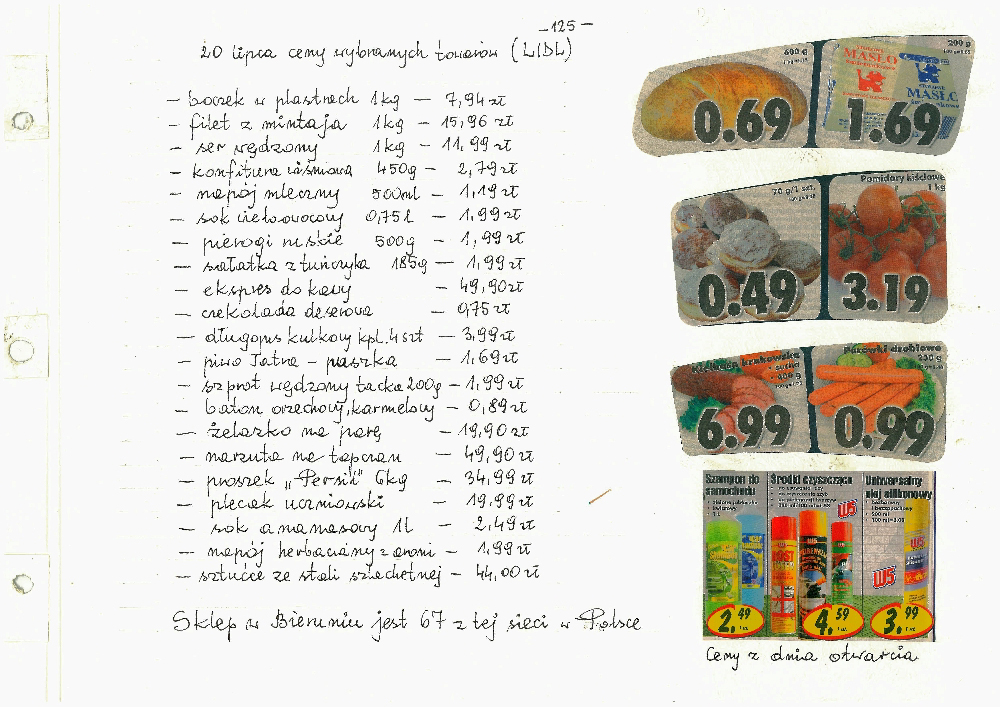 -125-
20 lipca ceny wybranych towarów (LIDL)
- boczek w plastrach 1kg - 7,94 zł
- filet z mintaja 1kg - 15,96 zł
- ser wędzony 1kg - 11,99 zł
- konfitura wiśniowa 450g - 2,79 zł
- napój mleczny 500ml - 1,19 zł
- sok wieloowocowy 0,75l - 1,99 zł
- pierogi ruskie 500g - 1,99 zł
- sałatka z tuńczyka 185g - 1,99 zł
- ekspres do kawy - 49,90 zł
- czekolada deserowa - 0,75 zł
- długopis kulkowy kpl. 4 szt - 3,99 zł
- piwo Tatra - puszka - 1,69 zł
- szprot wędzony tacka 200g - 1,99 zł
- baton orzechowy, karmelowy - 0,89 zł
- żelazko na parę - 19,90 zł
- narzuta na tapczan - 49,90 zł
- proszek „Persil" 6kg - 34,99 zł
- plecak uczniowski - 19,99 zł
- sok ananasowy 1l - 2,49 zł
- napój herbaciany z aroni - 1,99 zł
- sztućce ze stali szlachetnej - 44,00 zł
Sklep w Bieruniu jest 67 z tej sieci w Polsce
600 g
0.69
200 g
MASŁO
MASŁO
1.69
70 g/1 szt.
0.49
Pomidory kiściowe
1 kg
3.19
Kiełbasa krakowska
• sucha
• 400 g
6.99
Parówki drobiowe
250 g
0.99
Szampon do
samochodu
2.49
Środki czyszczące
W5
4.59
Uniwersalny
olej silikonowy
• 500 ml
W5
3.99
Ceny z dnia otwarcia